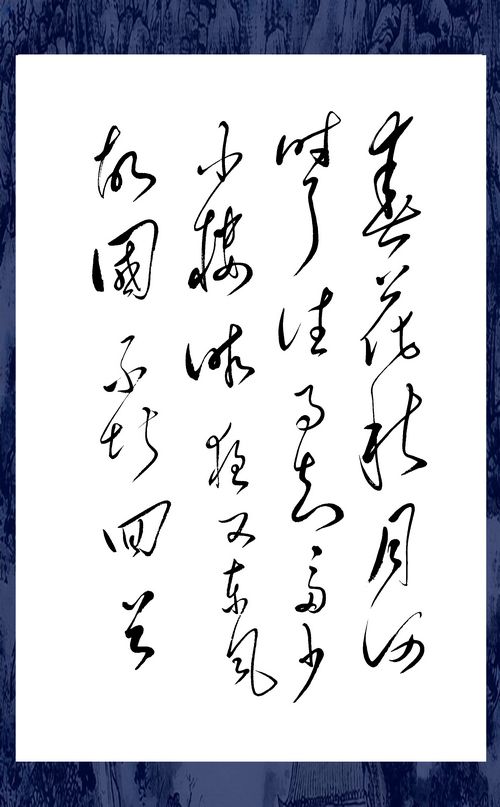 春花秋月何
時了往事知多少
小樓昨夜又東風
故國不堪回首